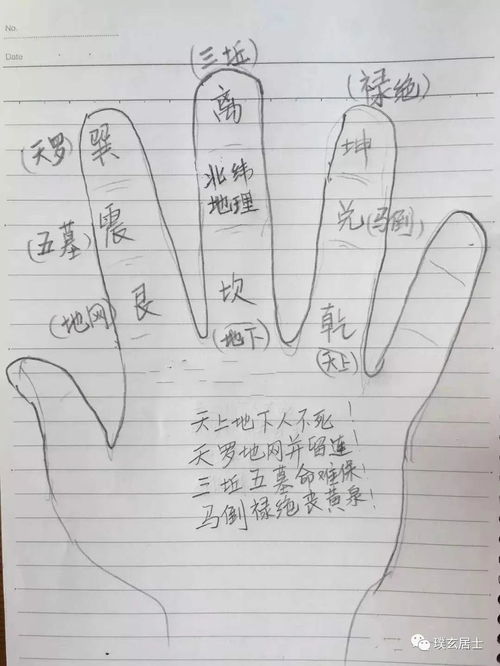 No.
Date
(三坵)
(禄绝)
离
(天罗)
巽
坤
北纬
地理
(五墓)
震
兑
(马倒)
(地网)
艮
坎
乾
(地下)
(天上)
天上地下人不死!
天罗地网并留连!
三坵五墓命难保!
马倒禄绝丧黄泉!
璞玄居士